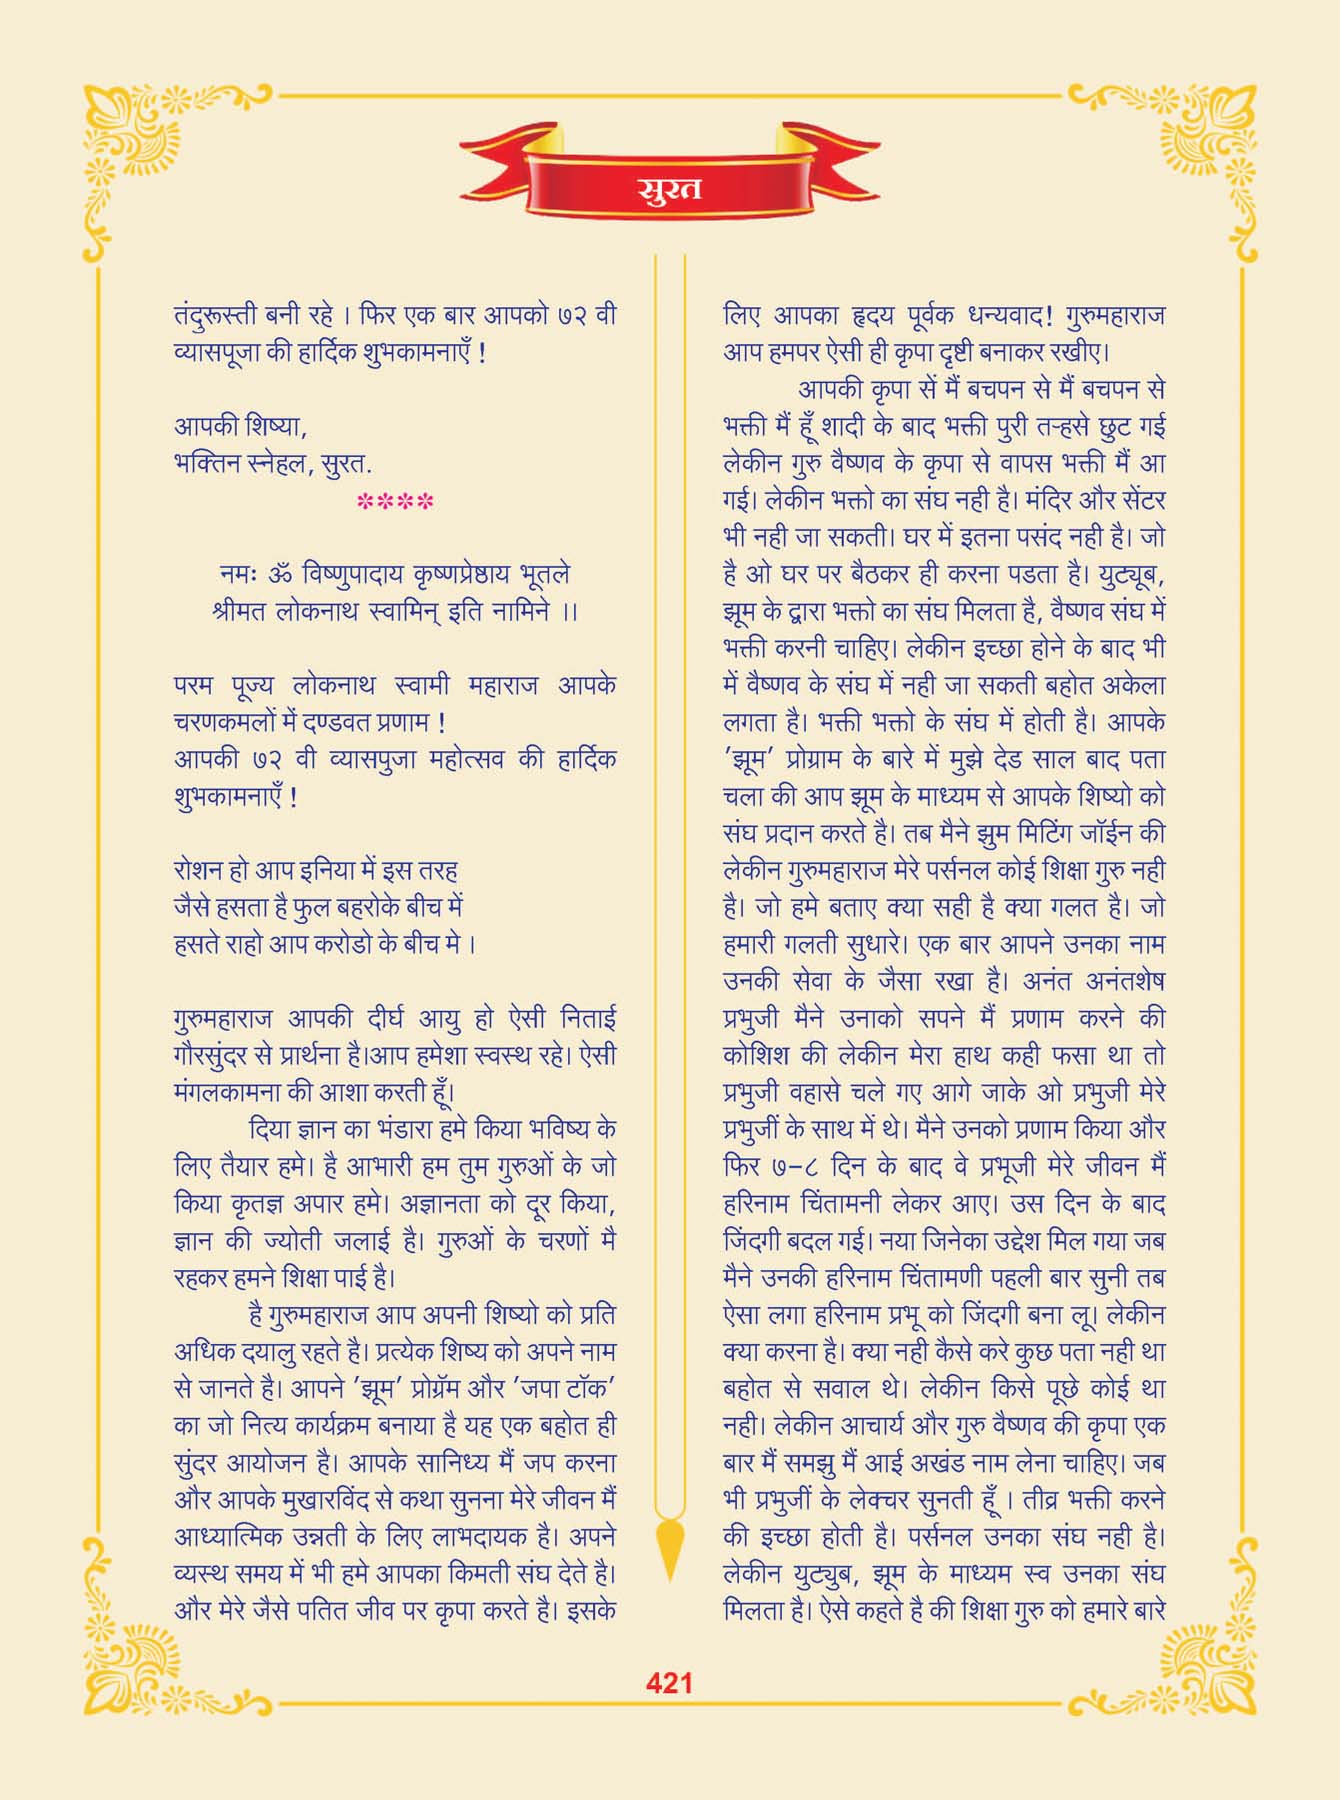 सुरत
तंदुरूस्ती बनी रहे । फिर एक बार आपको ७२ वी
व्यासपूजा की हार्दिक शुभकामनाएँ !
आपकी शिष्या,
भक्तिन स्नेहल, सुरत.
****
नमः ॐ विष्णुपादाय कृष्णप्रेष्ठाय भूतले
श्रीमत लोकनाथ स्वामिन् इति नामिने ।।
परम पूज्य लोकनाथ स्वामी महाराज आपके
चरणकमलों में दण्डवत प्रणाम !
आपकी ७२ वी व्यासपुजा महोत्सव की हार्दिक
शुभकामनाएँ !
रोशन हो आप इनिया में इस तरह
जैसे हसता है फुल बहरोके बीच में
हसते राहो आप करोडो के बीच मे ।
गुरुमहाराज आपकी दीर्घ आयु हो ऐसी निताई
गौरसुंदर से प्रार्थना है।आप हमेशा स्वस्थ रहे। ऐसी
मंगलकामना की आशा करती हूँ।
दिया ज्ञान का भंडारा हमे किया भविष्य के
लिए तैयार हमे। है आभारी हम तुम गुरुओं के जो
किया कृतज्ञ अपार हमे। अज्ञानता को दूर किया,
ज्ञान की ज्योती जलाई है। गुरुओं के चरणों मै
रहकर हमने शिक्षा पाई है।
है गुरुमहाराज आप अपनी शिष्यो को प्रति
अधिक दयालु रहते है। प्रत्येक शिष्य को अपने नाम
से जानते है। आपने ’झूम’ प्रोग्रॅम और ’जपा टॉक’
का जो नित्य कार्यक्रम बनाया है यह एक बहोत ही
सुंदर आयोजन है। आपके सानिध्य मैं जप करना
और आपके मुखारविंद से कथा सुनना मेरे जीवन मैं
आध्यात्मिक उन्नती के लिए लाभदायक है। अपने
व्यस्थ समय में भी हमे आपका किमती संघ देते है।
और मेरे जैसे पतित जीव पर कृपा करते है। इसके
लिए आपका हृदय पूर्वक धन्यवाद! गुरुमहाराज
आप हमपर ऐसी ही कृपा दृष्टी बनाकर रखीए।
आपकी कृपा सें मैं बचपन से मैं बचपन से
भक्ती मैं हूँ शादी के बाद भक्ती पुरी तऱ्हसे छुट गई
लेकीन गुरु वैष्णव के कृपा से वापस भक्ती मैं आ
गई। लेकीन भक्तो का संघ नही है। मंदिर और सेंटर
भी नही जा सकती। घर में इतना पसंद नही है। जो
है ओ घर पर बैठकर ही करना पडता है। युट्यूब,
झूम के द्वारा भक्तो का संघ मिलता है, वैष्णव संघ में
भक्ती करनी चाहिए। लेकीन इच्छा होने के बाद भी
में वैष्णव के संघ में नही जा सकती बहोत अकेला
लगता है। भक्ती भक्तो के संघ में होती है। आपके
’झूम’ प्रोग्राम के बारे में मुझे देड साल बाद पता
चला की आप झूम के माध्यम से आपके शिष्यो को
संघ प्रदान करते है। तब मैने झुम मिटिंग जॉईन की
लेकीन गुरुमहाराज मेरे पर्सनल कोई शिक्षा गुरु नही
है। जो हमे बताए क्या सही है क्या गलत है। जो
हमारी गलती सुधारे। एक बार आपने उनका नाम
उनकी सेवा के जैसा रखा है। अनंत अनंतशेष
प्रभुजी मैने उनाको सपने मैं प्रणाम करने की
कोशिश की लेकीन मेरा हाथ कही फसा था तो
प्रभुजी वहासे चले गए आगे जाके ओ प्रभुजी मेरे
प्रभुजीं के साथ में थे। मैने उनको प्रणाम किया और
फिर ७-८ दिन के बाद वे प्रभूजी मेरे जीवन मैं
हरिनाम चिंतामनी लेकर आए। उस दिन के बाद
जिंदगी बदल गई। नया जिनेका उद्देश मिल गया जब
मैने उनकी हरिनाम चिंतामणी पहली बार सुनी तब
ऐसा लगा हरिनाम प्रभू को जिंदगी बना लू। लेकीन
क्या करना है। क्या नही कैसे करे कुछ पता नही था
बहोत से सवाल थे। लेकीन किसे पूछे कोई था
नही। लेकीन आचार्य और गुरु वैष्णव की कृपा एक
बार मैं समझु मैं आई अखंड नाम लेना चाहिए। जब
भी प्रभुजीं के लेक्चर सुनती हूँ । तीव्र भक्ती करने
की इच्छा होती है। पर्सनल उनका संघ नही है।
लेकीन युट्युब, झूम के माध्यम स्व उनका संघ
मिलता है। ऐसे कहते है की शिक्षा गुरु को हमारे बारे
421